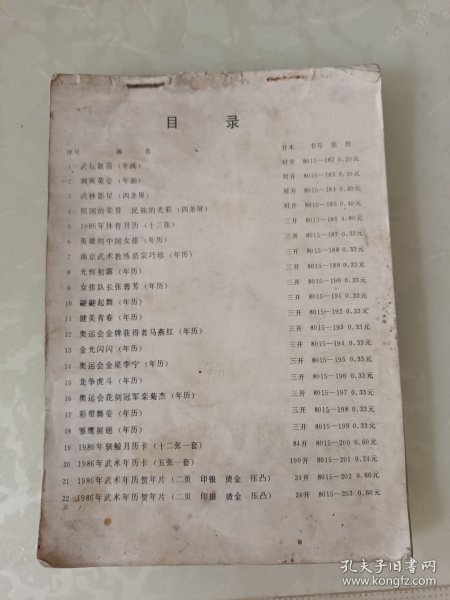 目 录
序号 画 名 开本 书号 估 价
1 武坛新苗（年画） 对开 8015—182 0.20元
2 飒爽英姿（年画） 对开 8015—183 0.20元
3 武林影星（四条屏） 对开 8015—184 0.40元
4 祖国的荣誉 民族的光彩（四条屏） 对开 8015—185 0.40元
5 1986年体育月历（十三张） 三开 8015—186 4.80元
6 英雄的中国女排（年历） 三开 8015—187 0.33元
7 南京武术教练员宗巧珍（年历） 三开 8015—188 0.33元
8 光辉初露（年历） 三开 8015—189 0.33元
9 女排队长张蓉芳（年历） 三开 8015—190 0.33元
10 翩翩起舞（年历） 三开 8015—191 0.33元
11 健美青春（年历） 三开 8015—192 0.33元
12 奥运会金牌获得者马燕红（年历） 三开 8015—193 0.33元
13 金光闪闪（年历） 三开 8015—194 0.33元
14 奥运会金星李宁（年历） 三开 8015—195 0.33元
15 龙争虎斗（年历） 三开 8015—196 0.33元
16 奥运会花剑冠军栾菊杰（年历） 三开 8015—197 0.33元
17 彩带舞姿（年历） 三开 8015—198 0.33元
18 雏鹰展翅（年历） 三开 8015—199 0.33元
19 1986年驯鲸月历卡（十二张一套） 84开 8015—200 0.60元
20 1986年武术年历卡（五张一套） 100开 8015—201 0.24元
21 1986年武术年历贺年片（二页 印银 烫金 压凸） 24开 8015—202 0.60元
22 1986年武术年历贺年片（二页 印银 烫金 压凸） 24开 8015—203 0.60元
孔夫子旧书网
www.kongfz.com